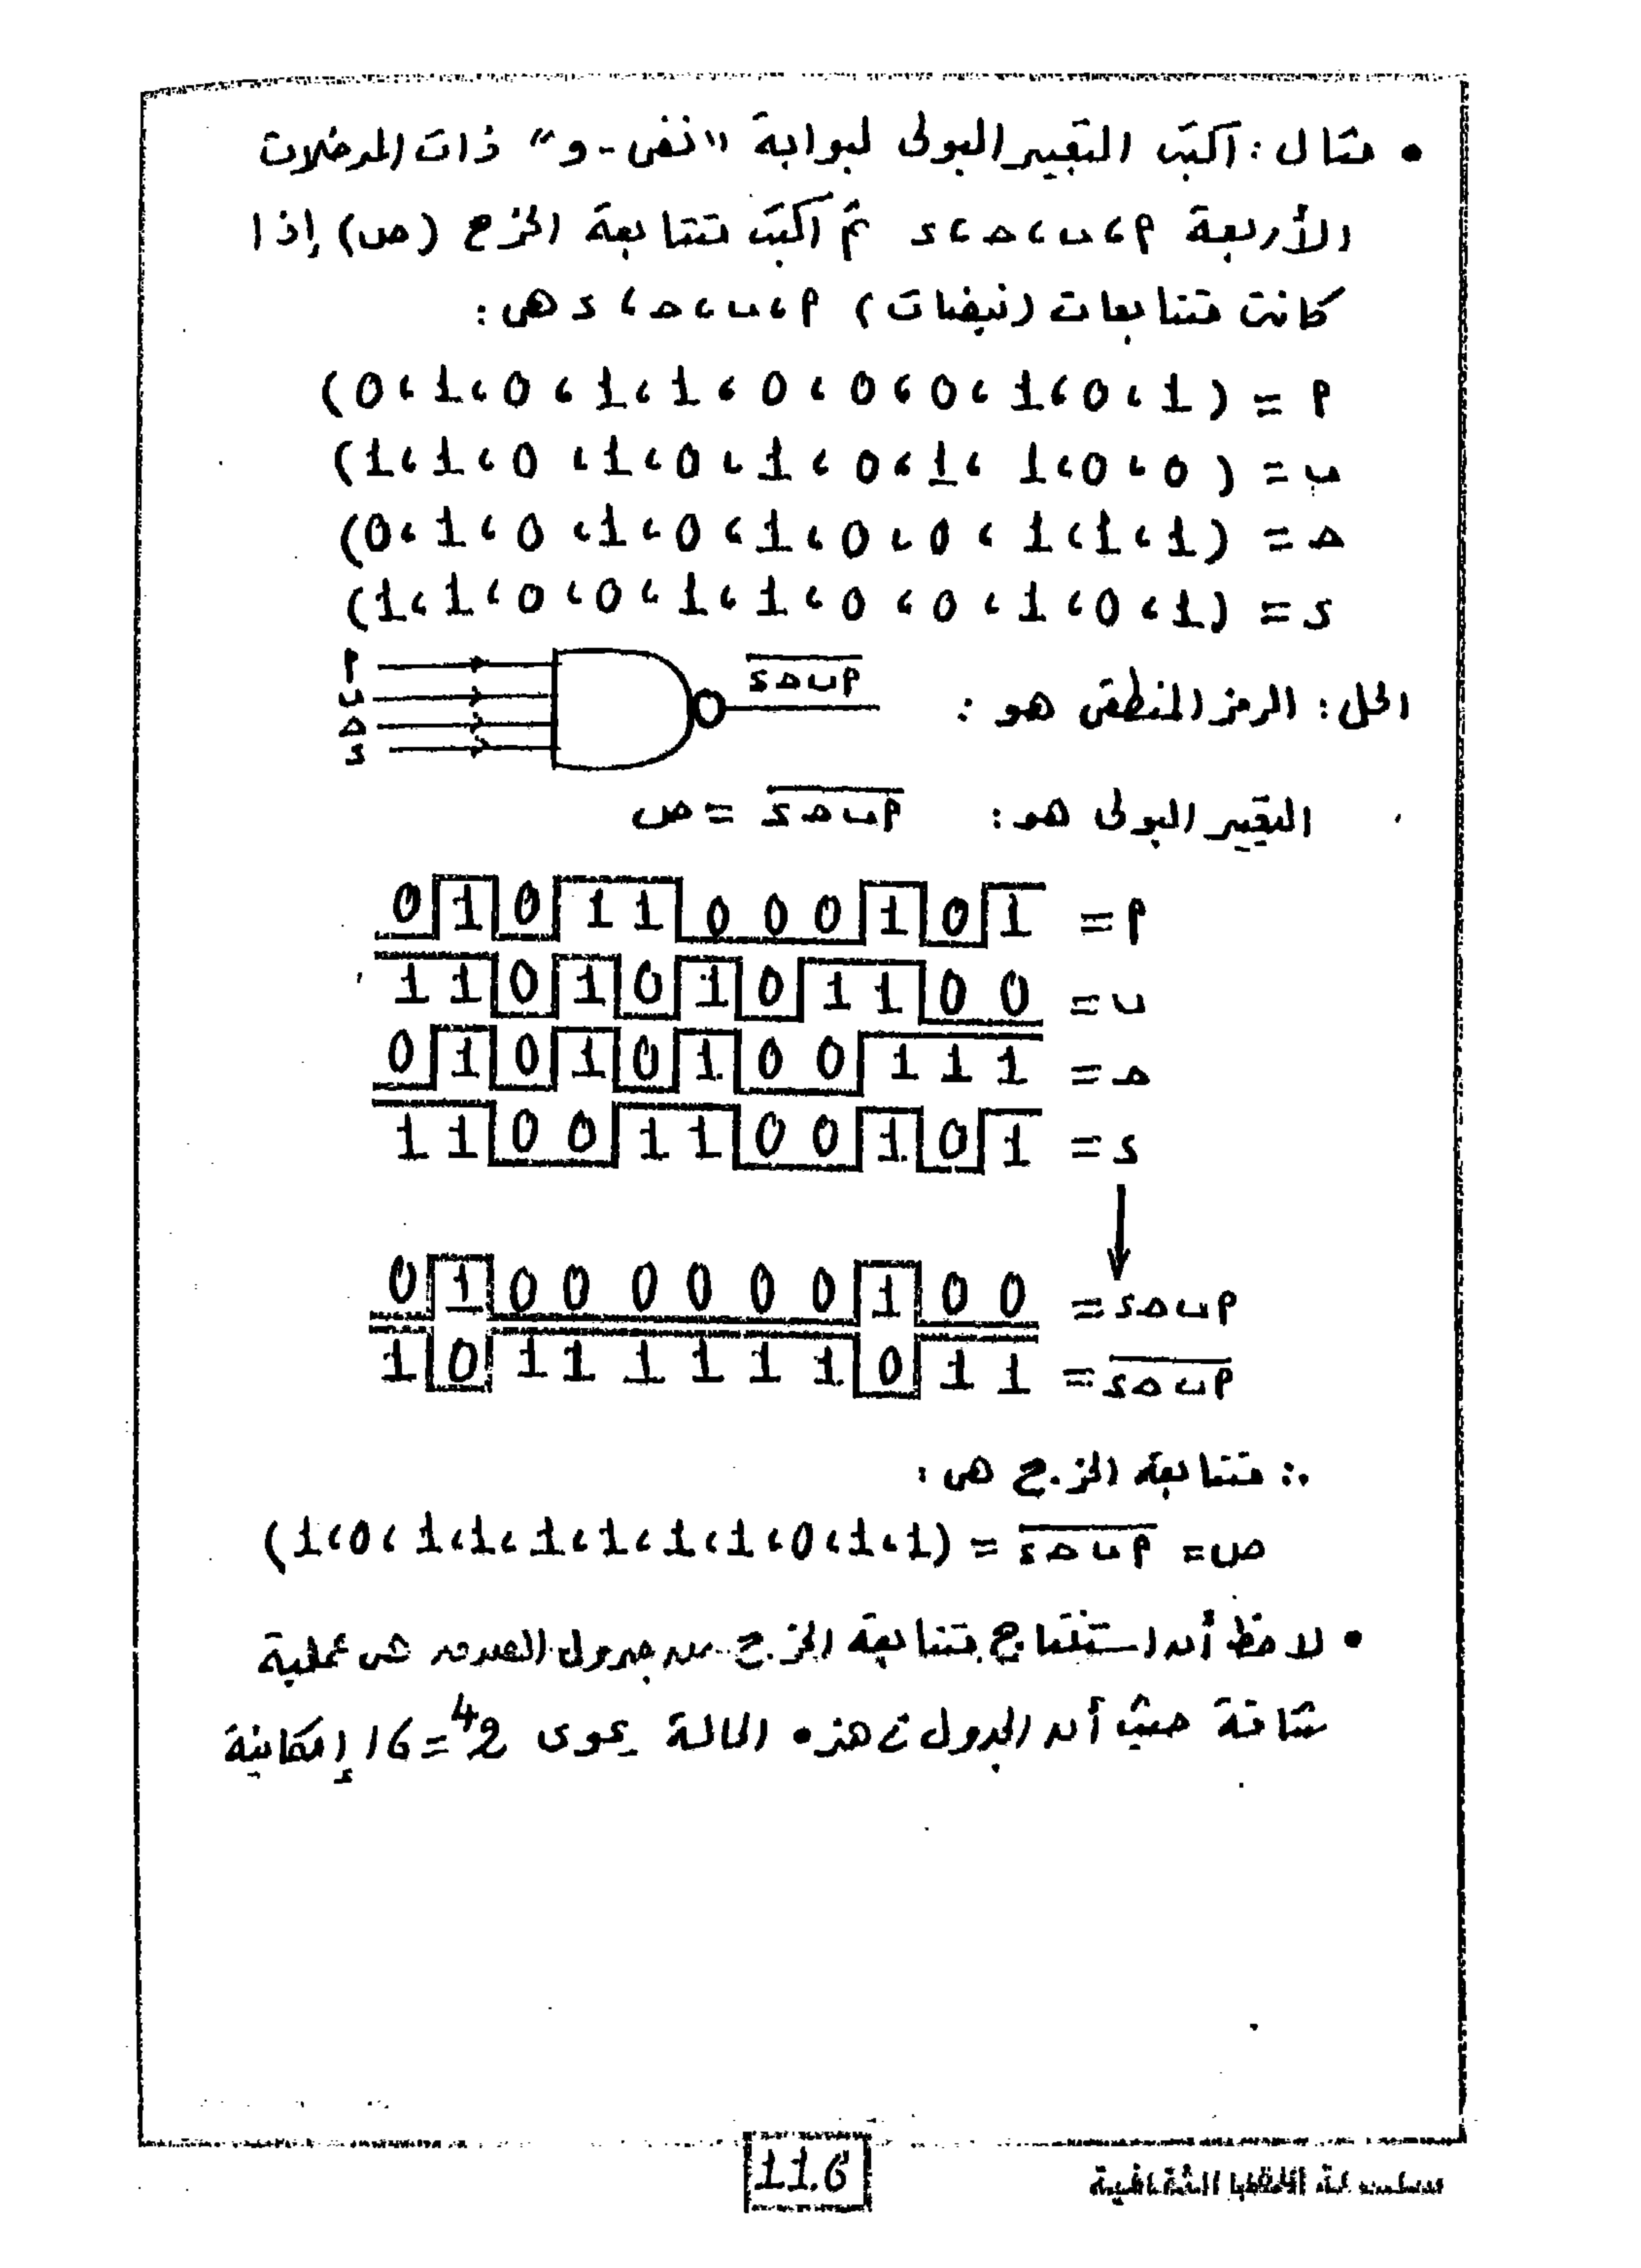 • مثال : اكتب التعبير البولى لبوابة "نفى - و" ذات المدخلات
الأربعة م ، ں ، ح ، s ثم اكتب متتابعة الخرج (ص) إذا
كانت متتابعات (نبضات) م ، ں ، ح ، s هى :
(0،1،0،1،1،0،0،0،1،0،1) = م
(1،1،0،1،0،1،0،1،1،0،0) = ں
(0،1،0،1،0،1،0،0،1،1،1) = ح
(1،1،0،0،1،1،0،0،1،0،1) = s
م
ں
ح
s
م ں ح s
الحل : الرمز المنطقى هو :
التعبير البولى هو : م ں ح s = ص
0 1 0 1 1 0 0 0 1 0 1 = م
1 1 0 1 0 1 0 1 1 0 0 = ں
0 1 0 1 0 1 0 0 1 1 1 = ح
1 1 0 0 1 1 0 0 1 0 1 = s
0 1 0 0 0 0 0 0 1 0 0 = م ں ح s
1 0 1 1 1 1 1 1 0 1 1 = م ں ح s
∴ متتابعة الخرج هى :
ص = م ں ح s = (1،0،1،1،1،1،1،1،0،1،1)
• لاحظ أن استنتاج متتابعة الخرج من جدول الصدق هى عملية
شاقة حيث أن الجدول فى هذه الحالة يحوى 2⁴=16 إمكانية
116
سلسلة الثقافية